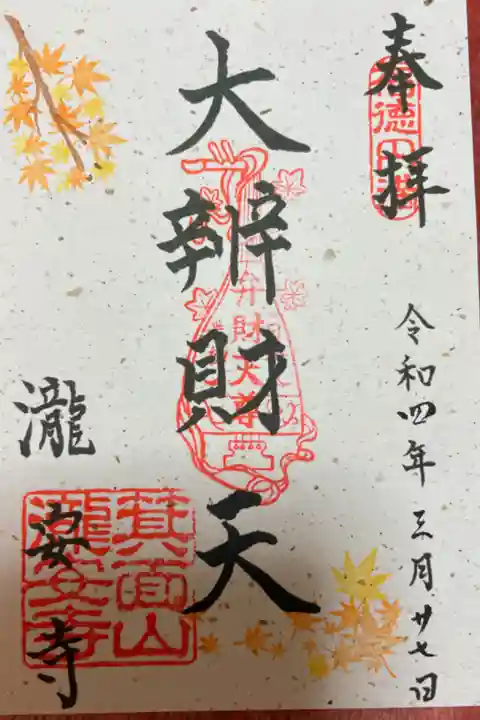 奉拝
令和四年三月廿七日
大辨財天
弁財天尊
瀧安寺
箕面山
瀧安寺